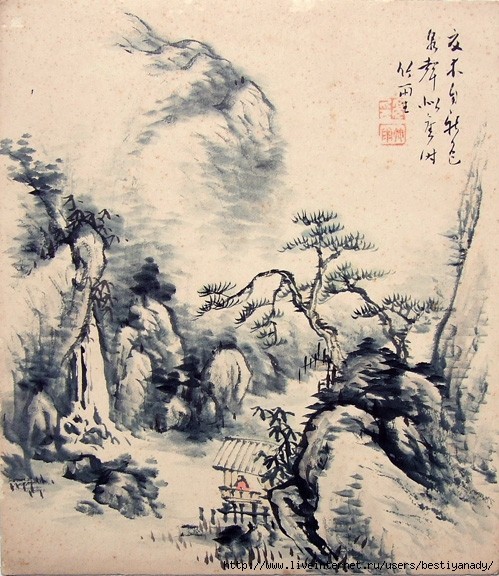 木自秋色
泉聲似時
竹雨生
http://www.liveinternet.ru/users/bestiyanady/